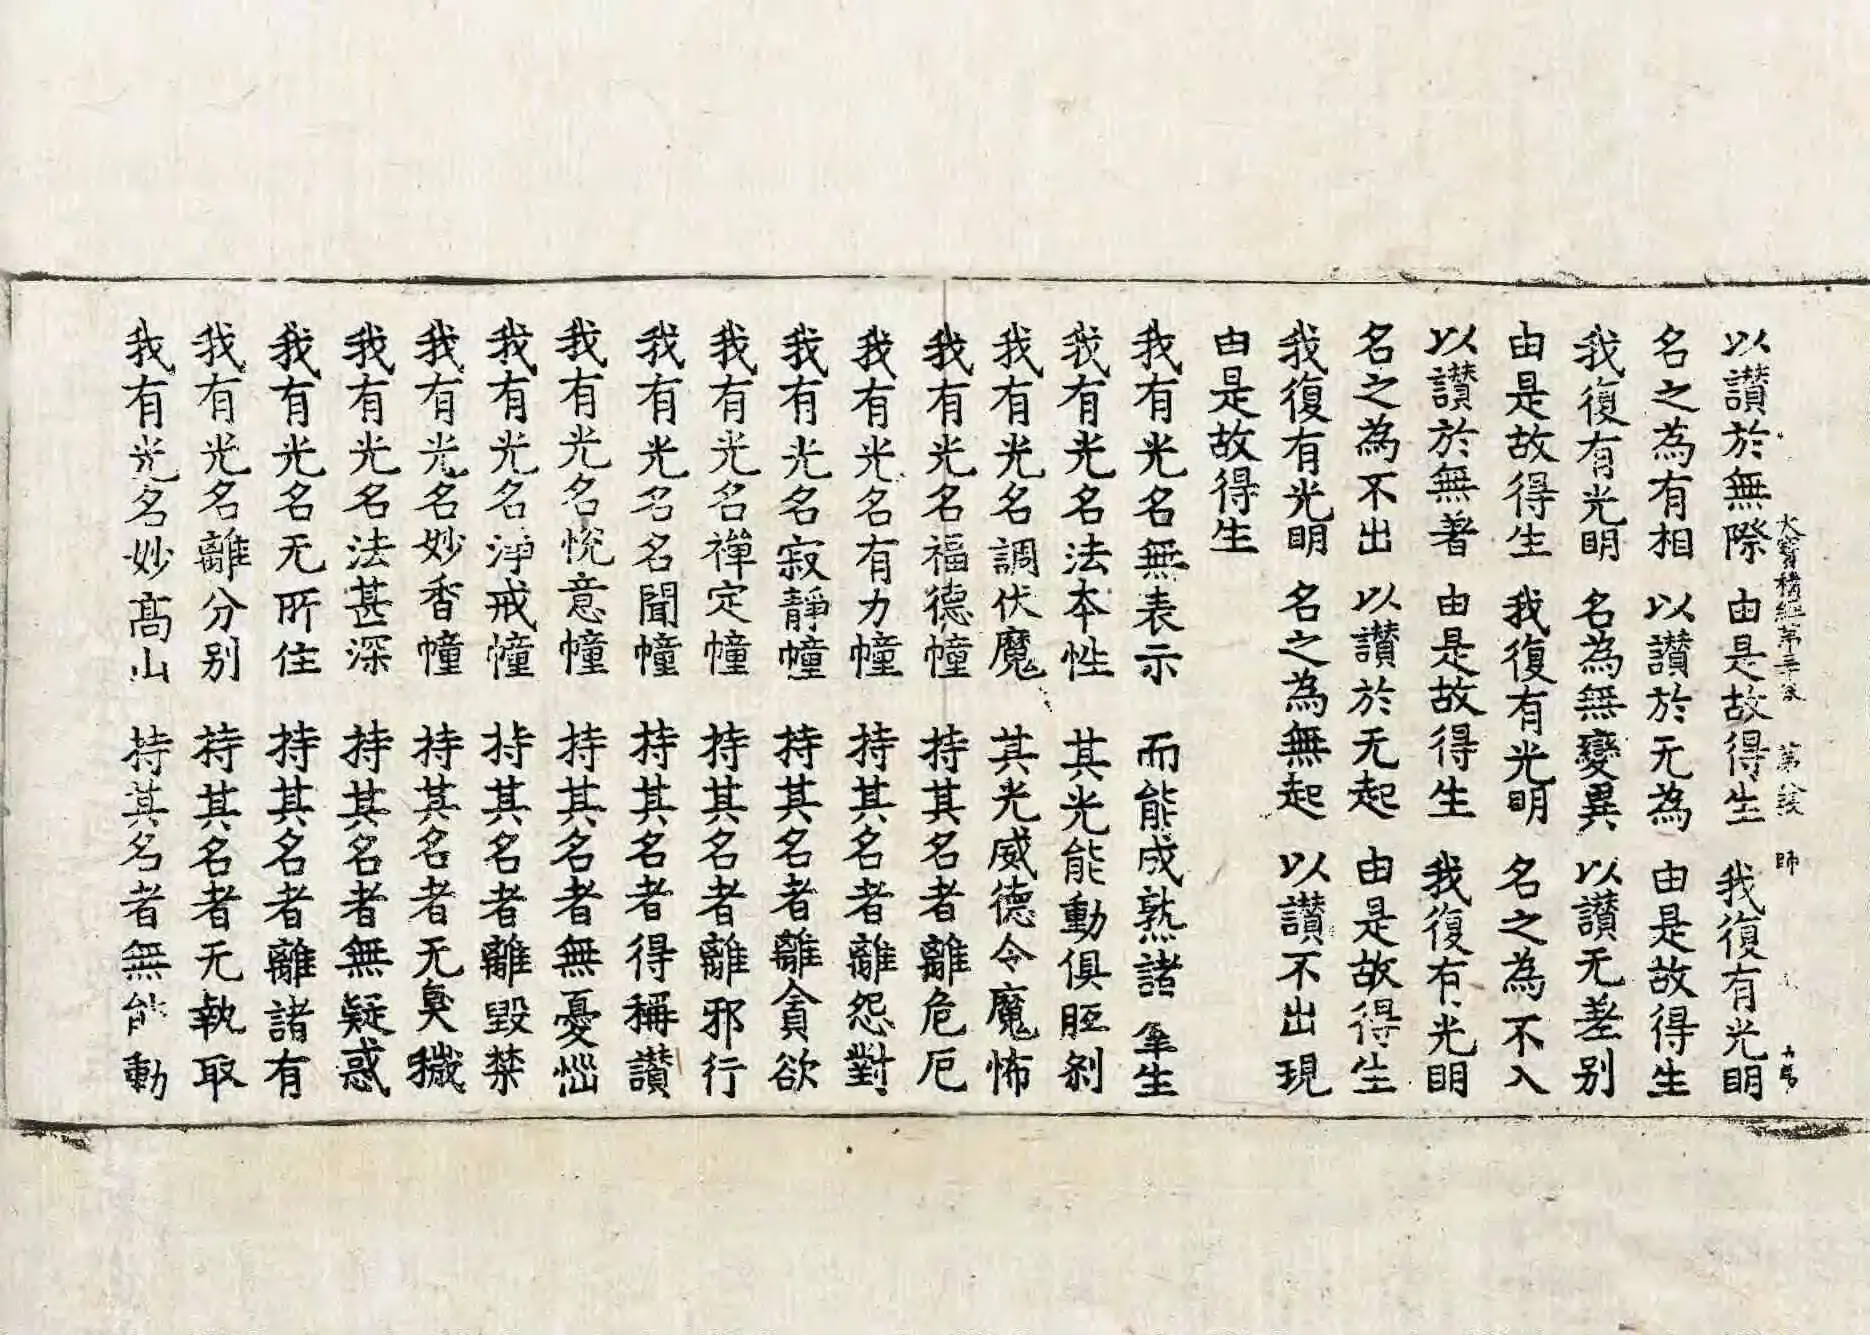 大寶積經第三十 第 師
以讃於無際 由是故得生 我復有光明
名之為有相 以讃於无為 由是故得生
我復有光明 名為無變異 以讃无差別
由是故得生 我復有光明 名之為不入
以讃於無著 由是故得生 我復有光明
名之為不出 以讃於无起 由是故得生
我復有光明 名之為無起 以讃不出現
由是故得生
我有光名無表示 而能成熟諸羣生
我有光名法本性 其光能動俱胝剎
我有光名調伏魔 其光威德令魔怖
我有光名福德幢 持其名者離危厄
我有光名有力幢 持其名者離怨對
我有光名寂靜幢 持其名者離貪欲
我有光名禪定幢 持其名者離邪行
我有光名名聞幢 持其名者得稱讃
我有光名悅意幢 持其名者無憂惱
我有光名淨戒幢 持其名者離毀禁
我有光名妙香幢 持其名者无臭穢
我有光名法甚深 持其名者無疑惑
我有光名无所住 持其名者離諸有
我有光名離分別 持其名者无執取
我有光名妙高山 持其名者無能動